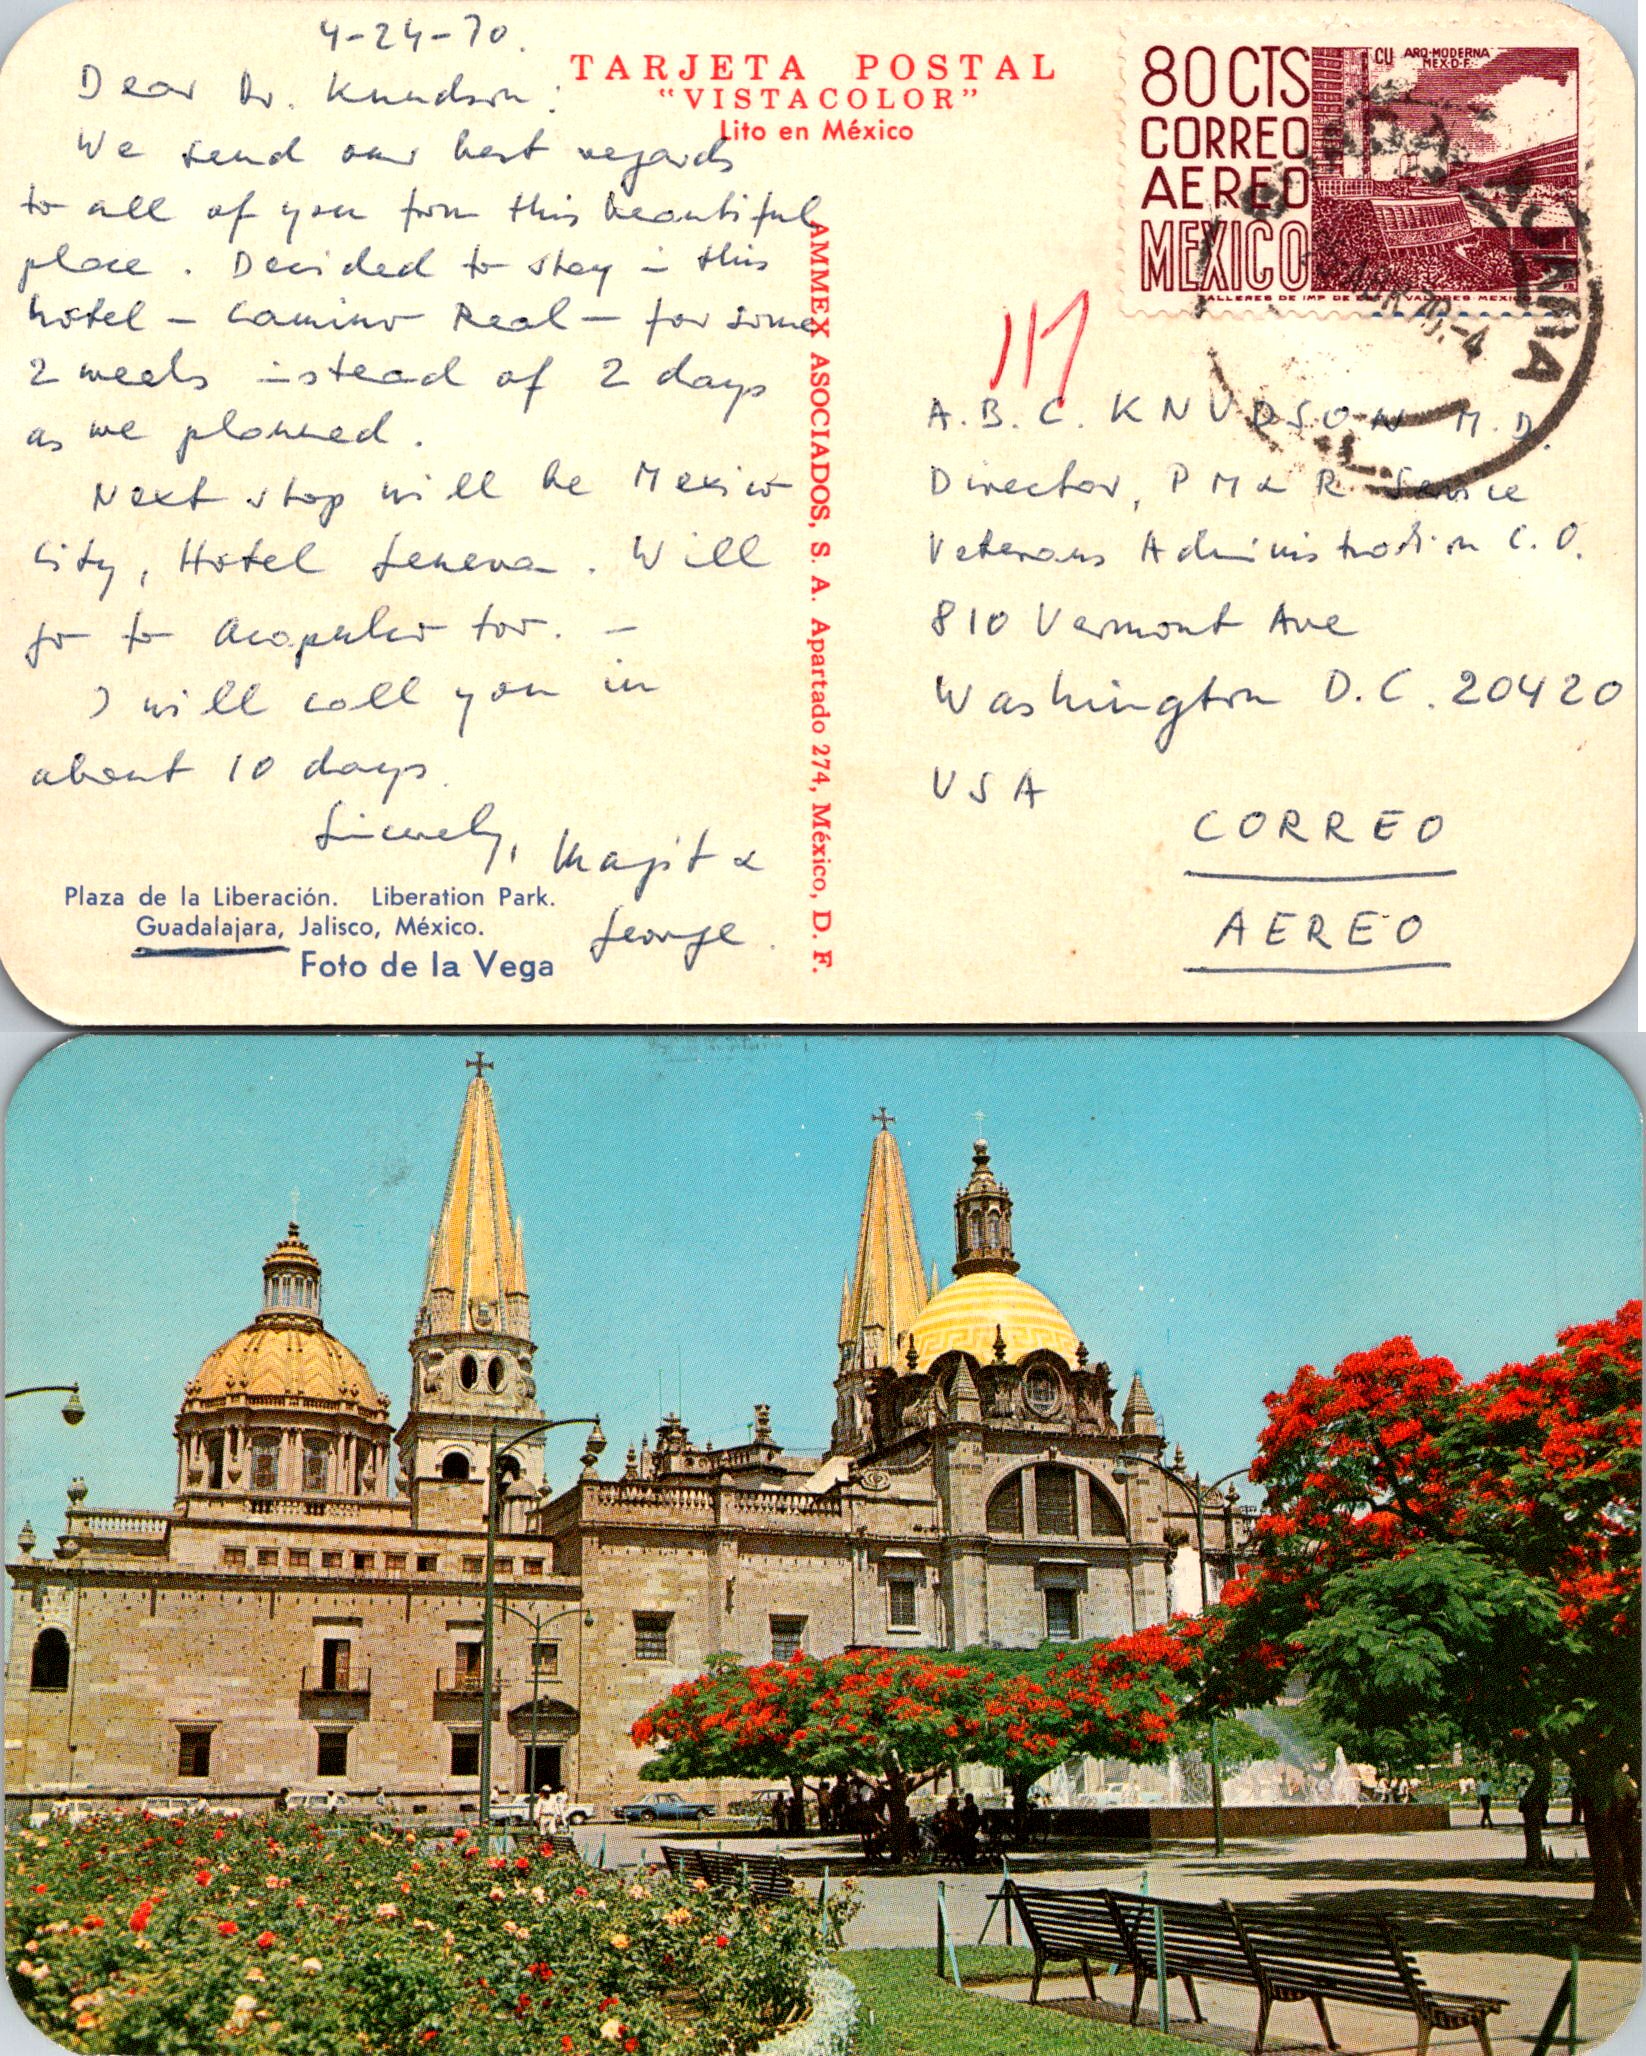 4-24-70.
Dear Dr. Knudson:
We send our best regards
to all of you from this beautiful
place. Decided to stay in this
hotel – Camino Real – for some
2 weeks instead of 2 days
as we planned.
Next stop will be Mexico
City, Hotel Geneva. Will
go to Acapulco too. –
I will call you in
about 10 days.
Sincerely, Magit &
George.
Plaza de la Liberación. Liberation Park.
Guadalajara, Jalisco, México.
Foto de la Vega
TARJETA POSTAL
"VISTACOLOR"
Lito en México
AMMEX ASOCIADOS, S. A. Apartado 274, México, D. F.
80 CTS
CORREO
AEREO
MEXICO
CU ARQ·MODERNA
MEX·D·F·
TALLERES DE IMP DE EST Y VALORES-MEXICO
117
A.B.C. KNUDSON M.D.
Director, PM & R Service
Veterans Administration C.O.
810 Vermont Ave
Washington D.C. 20420
USA
CORREO
AEREO